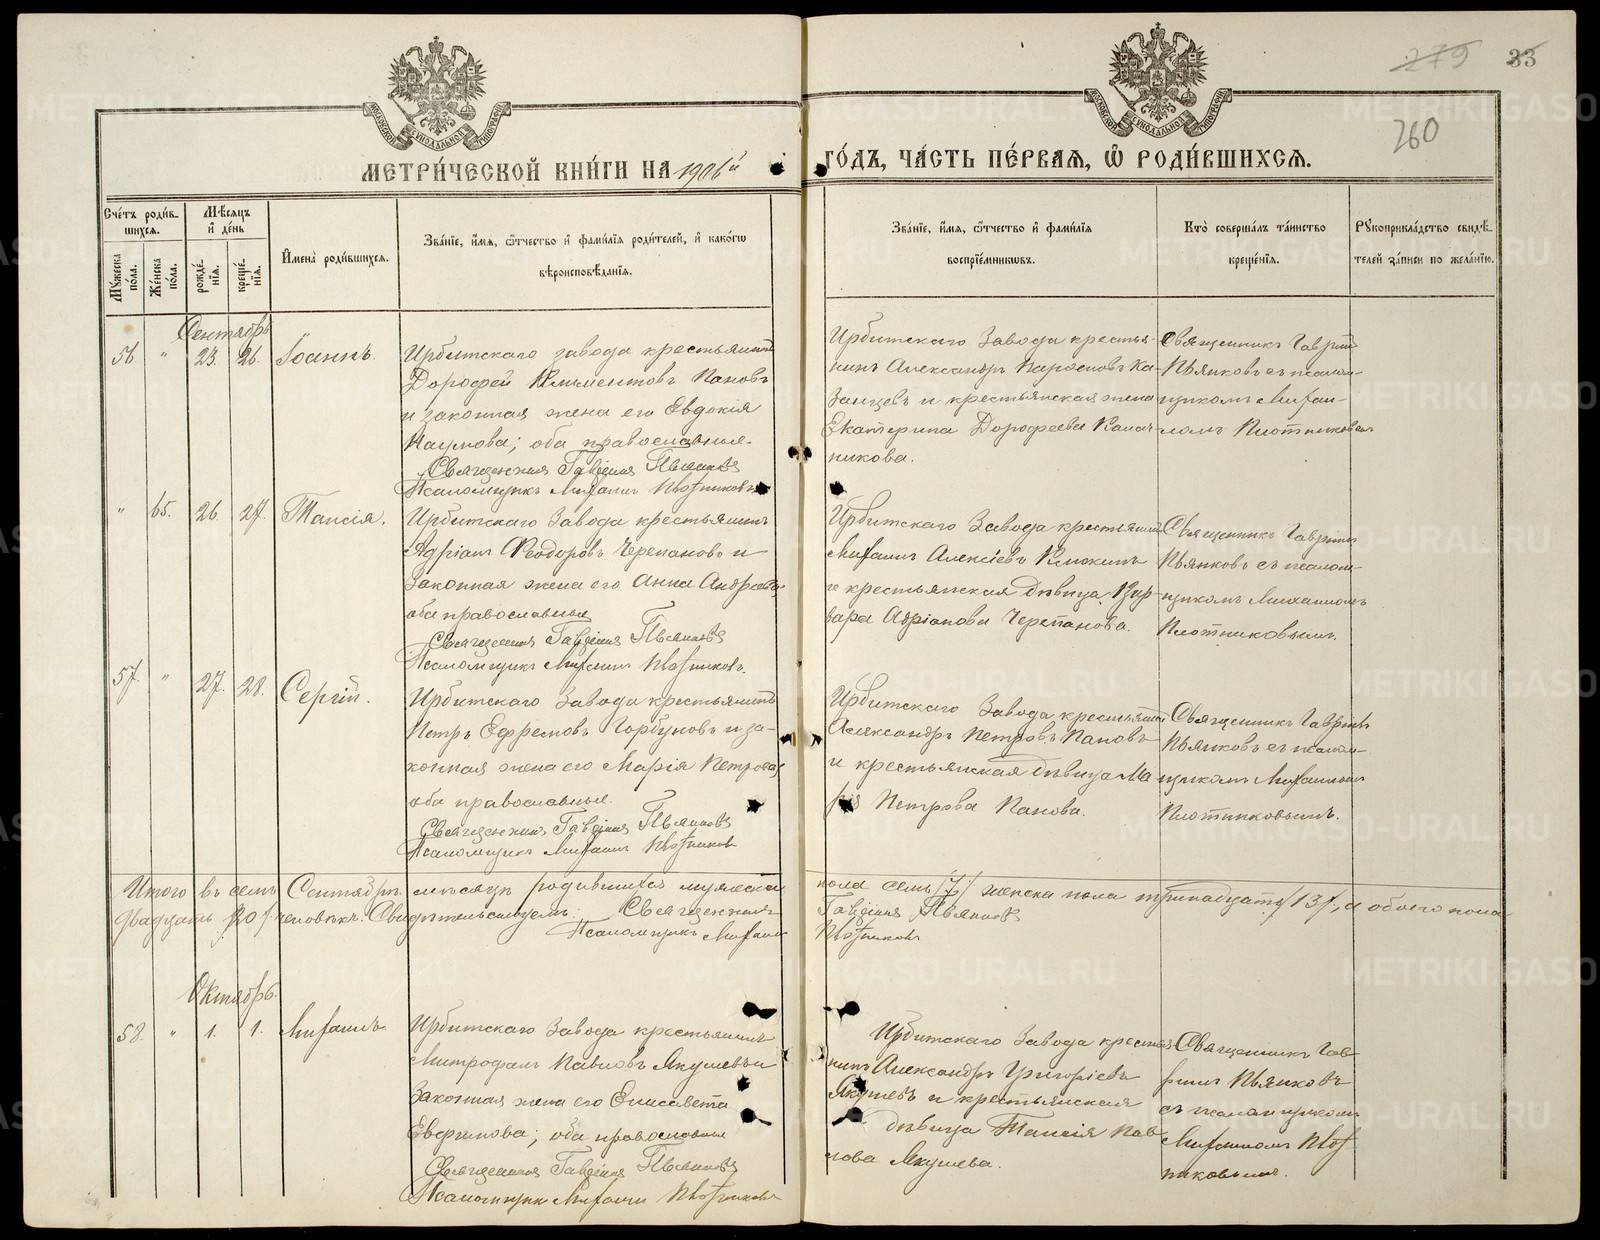 279 33
260
МЕТРИ́ЧЕСКОЙ КНИ́ГИ НА 1906й ГО́ДЪ, ЧА́СТЬ ПЕ́РВАЯ, Ѿ РОДИ́ВШИХСЯ.
Сче́тъ роди́вшихся.
Мѣ́сяцъ и де́нь
Мꙋ́жеска по́ла.
Же́нска по́ла.
рожде́нїя.
креще́нїя.
И҆мена̀ роди́вшихся.
Зва́нїе, и҆́мя, ѻ҆́тчество и҆ фами́лїя роди́телей, и҆ како́гѡ
вѣроисповѣ́данїя.
Зва́нїе, и҆́мя, ѻ҆́тчество и҆ фами́лїя
воспрїе́мниковъ.
Кто̀ соверша́лъ та́инство
креще́нїя.
Рꙋкоприкла́дство свидѣ́-
телей за́писи по жела́нїю.
Сентябрь
56. " 23. 26. Іоаннъ.
Ирбитскаго завода крестьянинъ
Дорофей Климентовъ Пановъ
и законная жена его Евдокія
Наумова; оба православные.
Священникъ Гавріилъ Пьянковъ
Псаломщикъ Михаилъ Плотниковъ
Ирбитскаго Завода крестья-
нинъ Александръ
и крестьянская жена
Екатерина Дорофеева
никова.
Священникъ Гавріилъ
Пьянковъ съ псалом-
щикомъ Михаи-
ломъ Плотниковым
" 65. 26. 27. Таисія.
Ирбитскаго Завода крестьянинъ
Адріанъ Ѳеодоровъ Черепановъ и
законная жена его Анна Андреева,
оба православные
Священникъ Гавріилъ Пьянковъ
Псаломщикъ Михаилъ Плотниковъ.
Ирбитскаго Завода крестьянинъ
Михаилъ Алексіевъ Клюкинъ
и крестьянская дѣвица Вар-
вара Адріанова Черепанова.
Священникъ Гавріилъ
Пьянковъ съ псалом-
щикомъ Михаиломъ
Плотниковымъ.
57. " 27. 28. Сергій.
Ирбитскаго Завода крестьянинъ
Петръ Ефремовъ Горбуновъ и за-
конная жена его Марія Петрова,
оба православные.
Священникъ Гавріилъ Пьянковъ
Псаломщикъ Михаилъ Плотниковъ
Ирбитскаго Завода крестьянинъ
Александръ Петровъ Пановъ
и крестьянская дѣвица Ма-
рія Петрова Панова.
Священникъ Гавріилъ
Пьянковъ съ псалом-
щикомъ Михаиломъ
Плотниковымъ.
Итого въ семъ Сентябрѣ мѣсяцѣ родившихся мужеска пола семь /7/ женска пола тринадцать /13/, а обоего пола
двадцать /20/ человѣкъ. Свидѣтельствуемъ: Священникъ Гавріилъ Пьянковъ
Псаломщикъ Михаилъ Плотниковъ
Октябрь.
58. " 1. 1. Михаилъ
Ирбитскаго Завода крестьянинъ
Митрофанъ Павловъ Якушевъ и
законная жена его Елисавета
; оба православные
Священникъ Гавріилъ Пьянковъ
Псаломщикъ Михаилъ Плотниковъ
Ирбитскаго Завода крестья-
нинъ Александръ Григоріевъ
Якушевъ и крестьянская
дѣвица Таисія Пав-
лова Якушева.
Священникъ Гав-
ріилъ Пьянковъ
съ псаломщикомъ
Михаиломъ Плот-
никовымъ.
METRIKI.GASO-URAL.RU